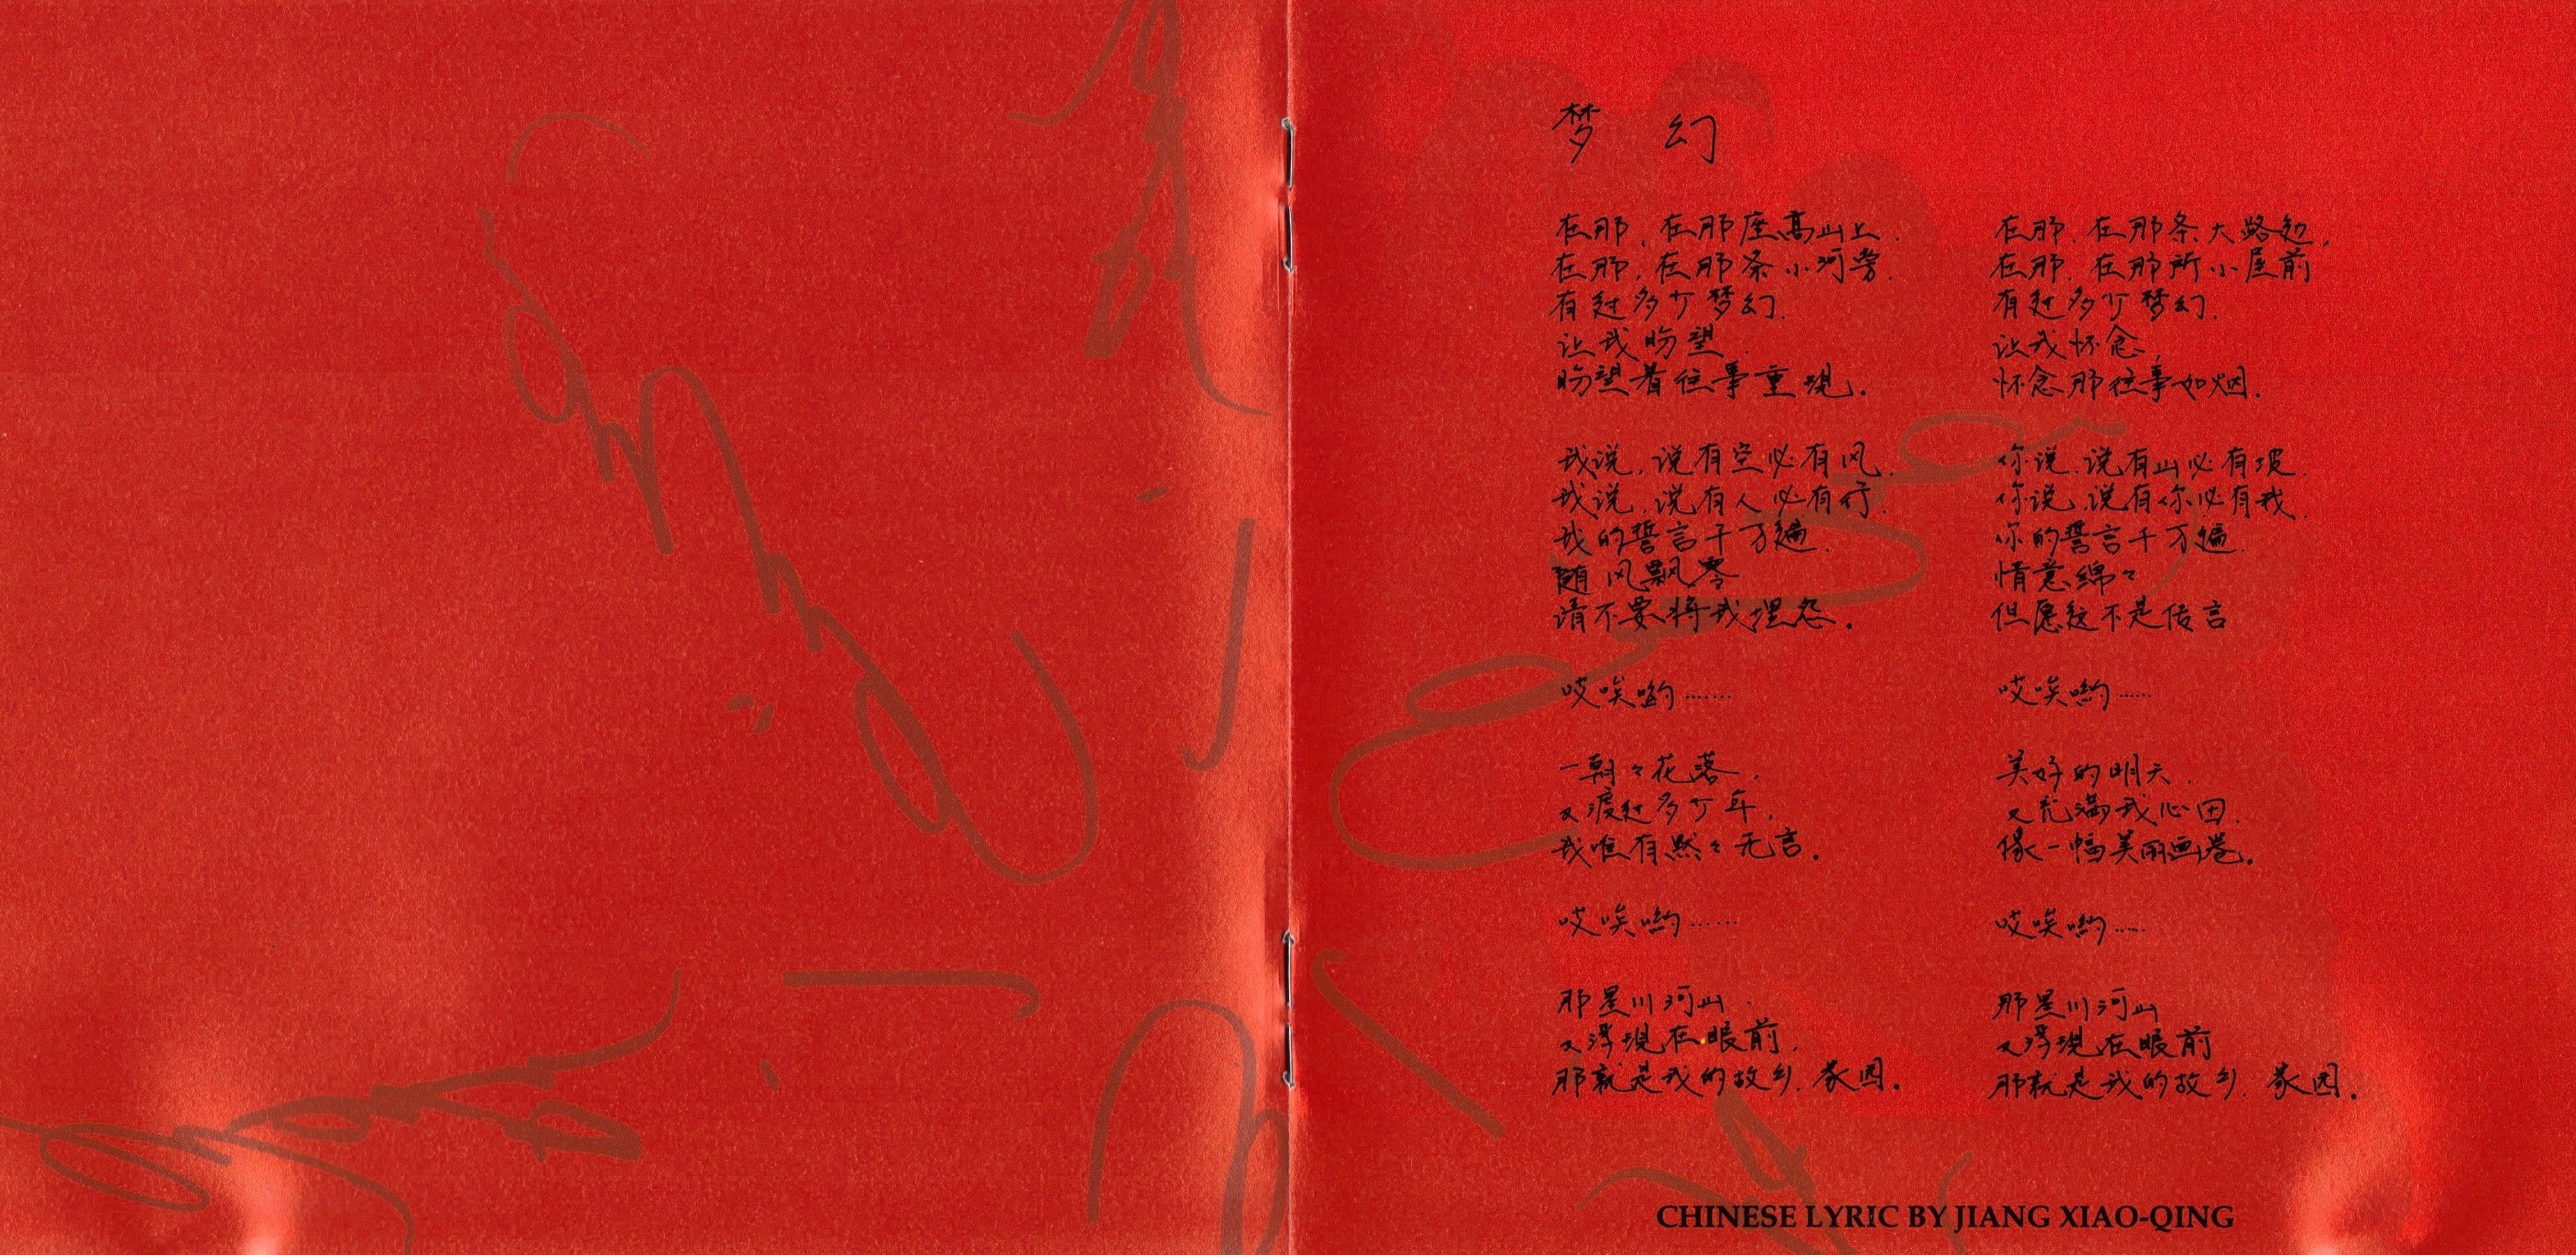 梦 幻
在那,在那座高山上.
在那,在那条小河旁.
有过多少梦幻.
让我盼望.
盼望着往事重现.
我说,说有空必有风.
我说,说有人必有仔.
我的誓言千万遍.
随风飘零
请不要将我埋怨.
哎唉哟……
一朝々花落.
又渡过多少年.
我唯有默々无言.
哎唉哟……
那是川河山.
又浮现在眼前.
那就是我的故乡.家园.
在那.在那条大路边.
在那.在那所小屋前
有过多少梦幻.
让我怀念.
怀念那往事如烟.
你说.说有山必有坡.
你说.说有你必有我.
你的誓言千万遍.
情意绵々
但愿这不是传言
哎唉哟……
美好的明天.
又充满我心田.
像一幅美丽画卷.
哎唉哟……
那是川河山
又浮现在眼前
那就是我的故乡.家园.
CHINESE LYRIC BY JIANG XIAO-QING